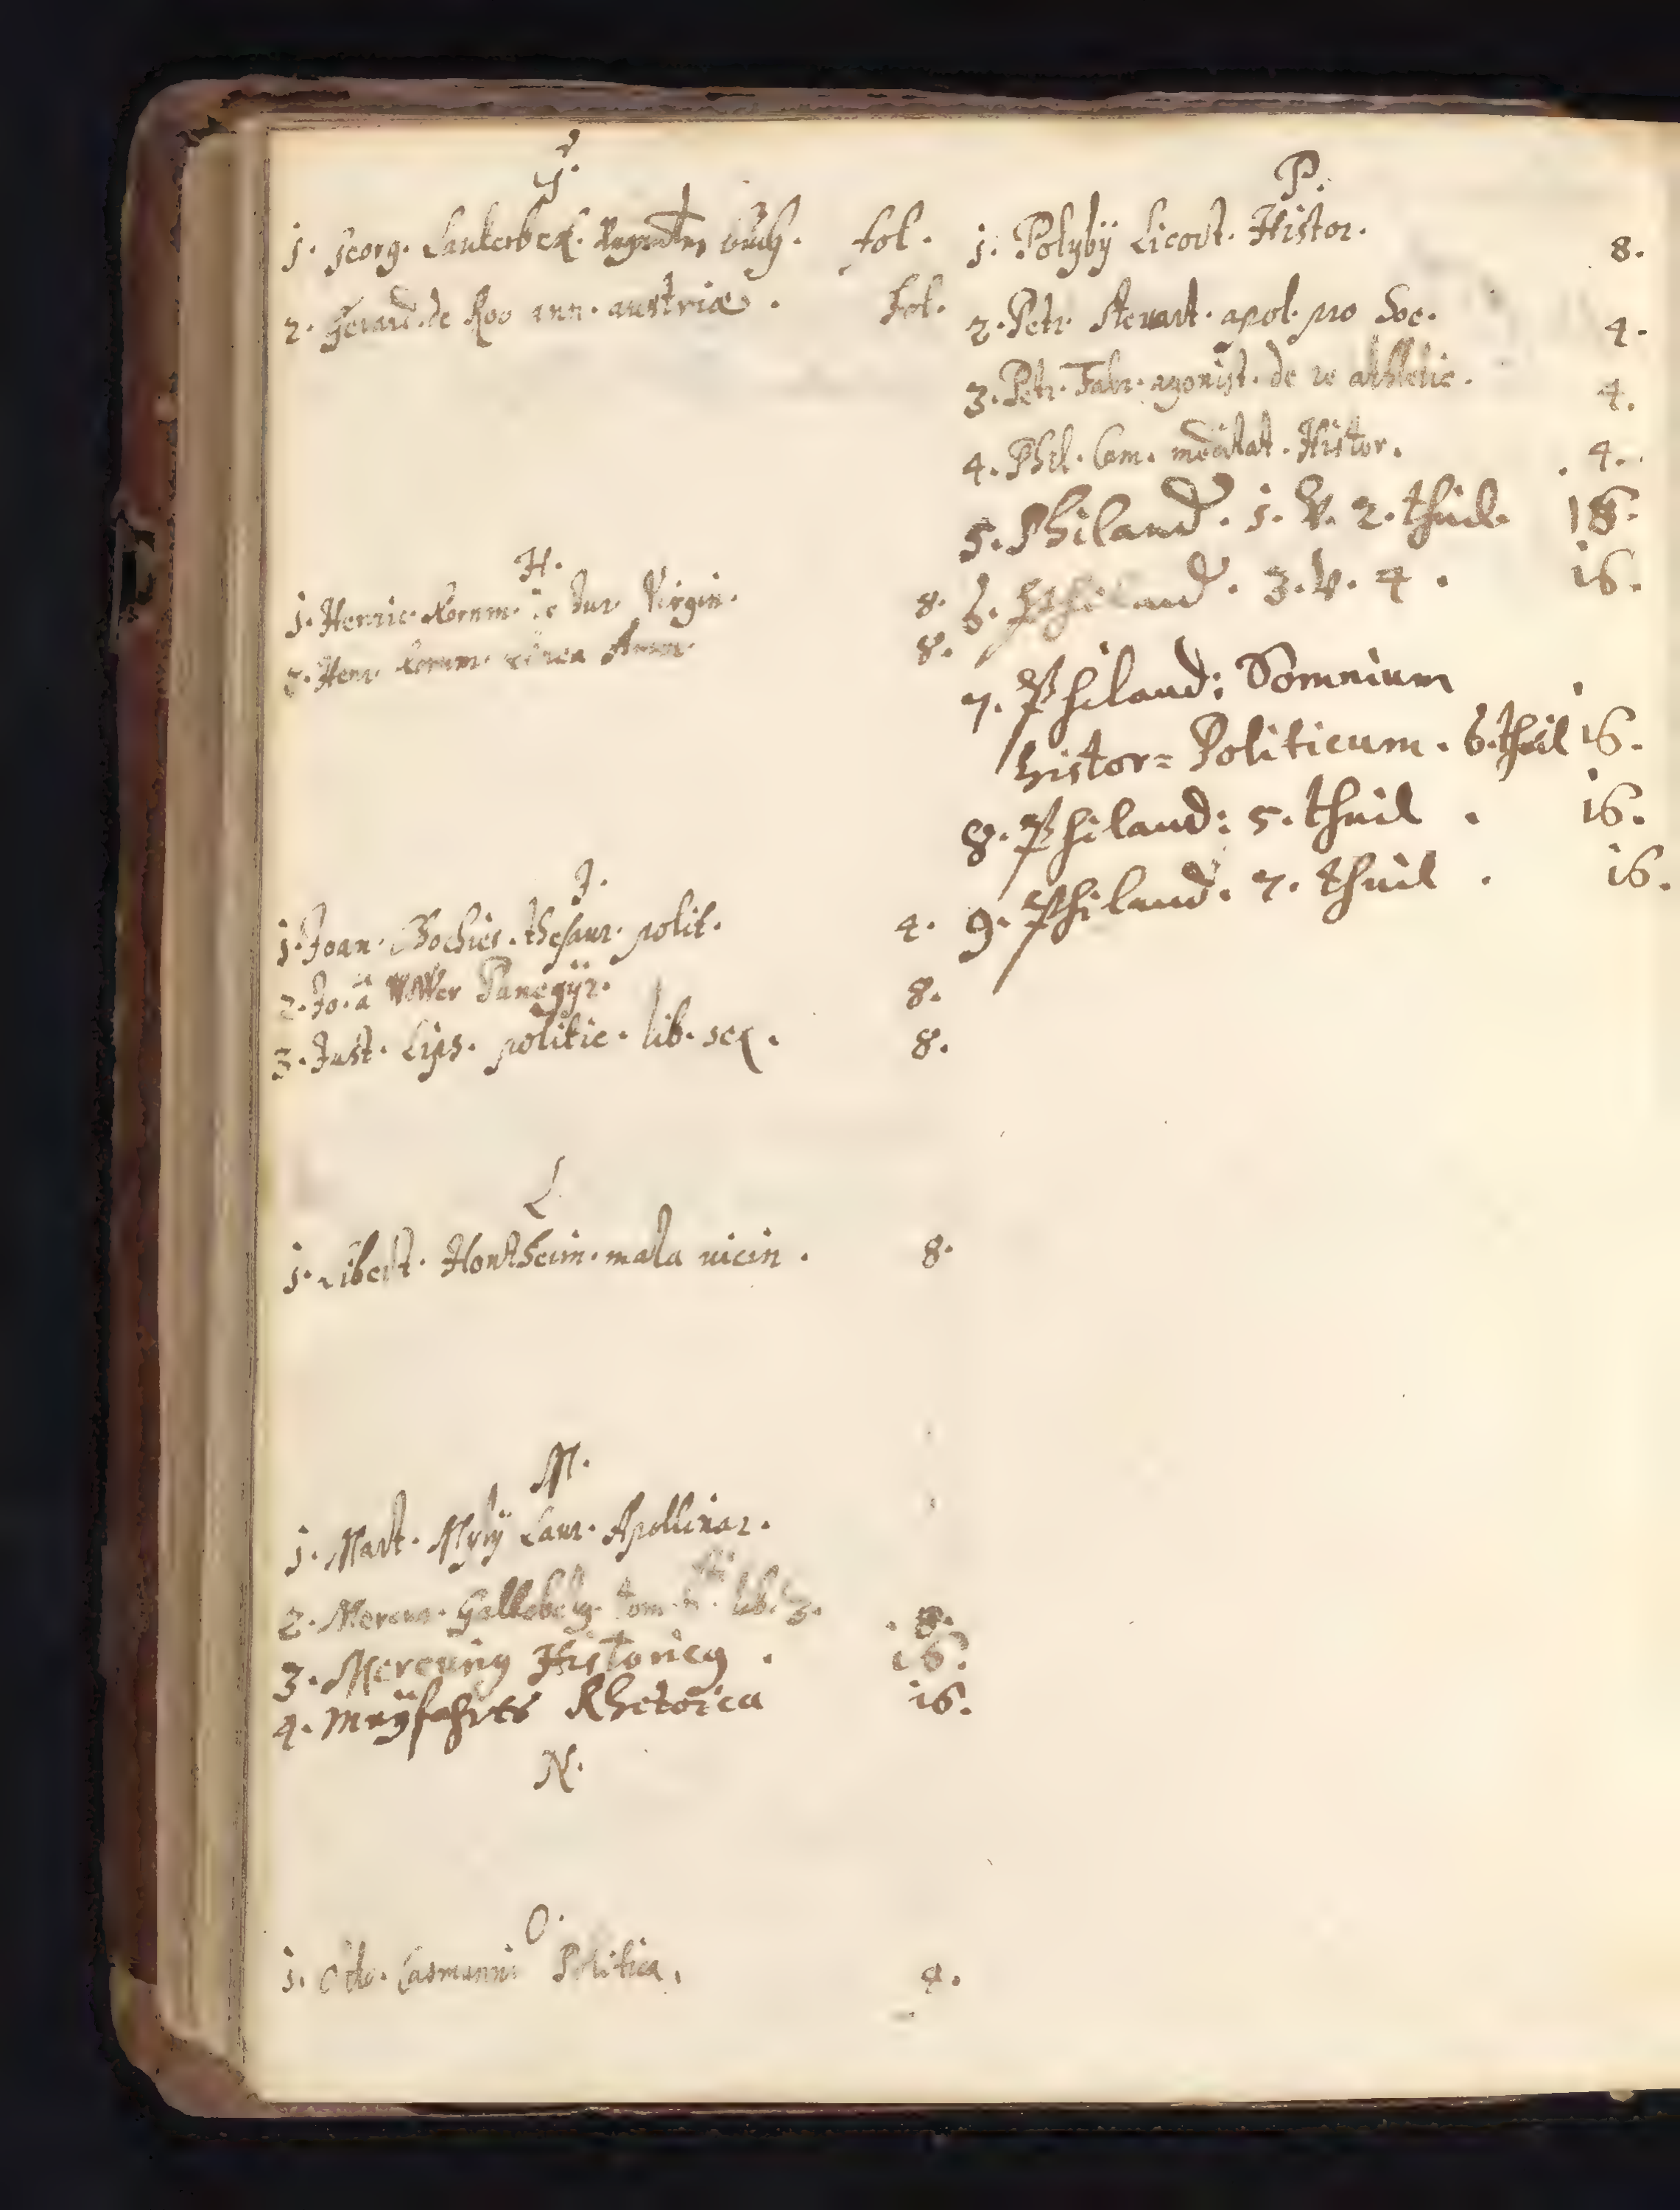 G.
1. Georg. Lauterbek. Regenten buch. fol.
2. Gerard. de Roo ann. austriæ. fol.
H.
1. Henric. Kornm. de Vir. Virgin. 8.
2. Henr. Kornm. Linea Amor. 8.
J.
1. Joan. Bochier. thesaur. polit. 4.
2. Jo. a Wower Panegÿr. 8.
3. Just. Lips. politic. lib. sex. 8.
L
1. Libert. Hontheim. mala vicin. 8.
M.
1. Mart. Mylÿ Laur. Apollinar.
2. Mercur. Gallobelg. tom. lib. 3. 8.
3. Mercurius Historicus. 16.
4. Meÿfahrts Rhetorica 16.
N.
O.
1. Otto. Casmanni Politica. 4.
P.
1. Polybÿ Licort. Histor. 8.
2. Petr. Stevart. apol. pro Soc. 4.
3. Petr. Fabr. agonist. de re athletic. 4.
4. Phil. Cam. meditat. Histor. 4.
5. Philand. 1. V. 2. theil. 18.
6. Philand. 3. V. 4. 16.
7. Philand: Somnium
histor= Politicum. 6. theil 16.
8. Philand: 5. theil. 16.
9. Philand. 7. theil. 16.